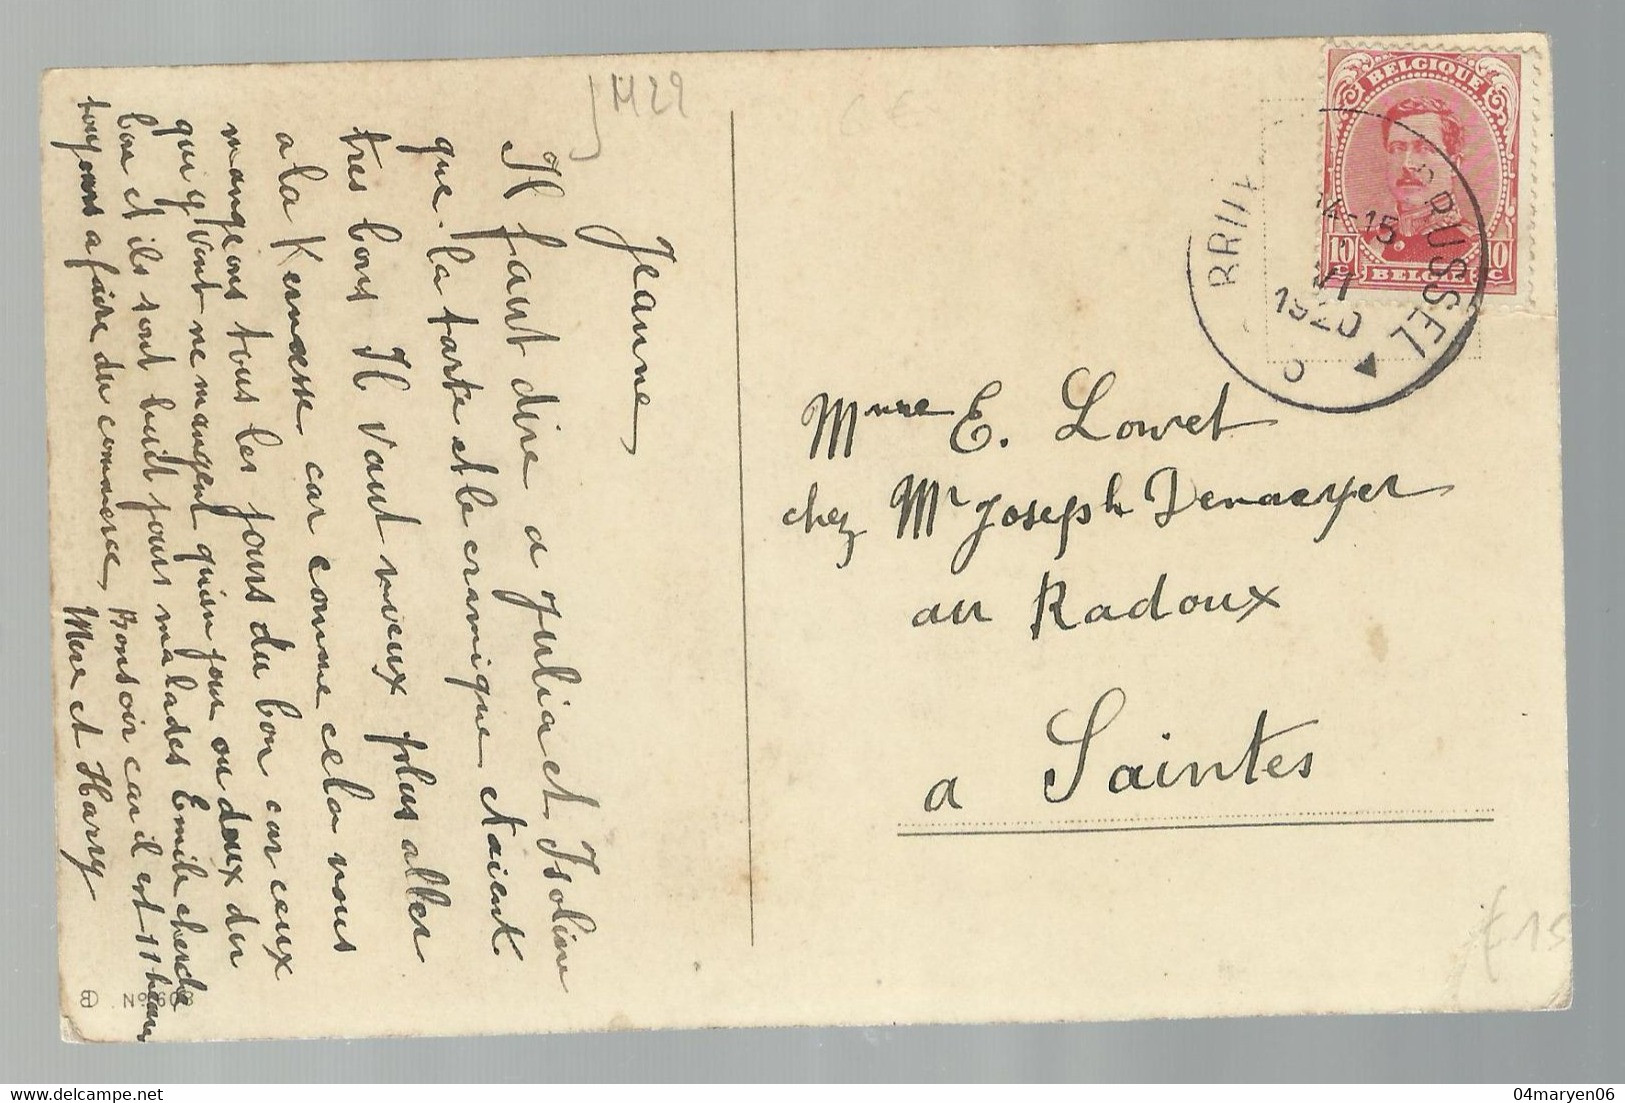 JM22
Jeanne
Il faut dire a Julia et Isoline
que la tarte et le cramique etaient
tres bons Il vaut mieux plus aller
a la Kermesse car comme cela nous
mangeons tous les jours du bon car ceux
qui y vont ne mangent qu'un jour ou deux du
bon et ils sont huit jours malades Emile cherche
toujours a faire du commerce, Bonsoir car il est 11 heures
Mere et Harry
No
BELGIQUE
10 C
10 C
BELGIË
BRUSSEL
14-15
VI
1920
Mme E. Lowet
chez Mr Joseph Denaeyer
au Radoux
a Saintes
€15
04maryen06